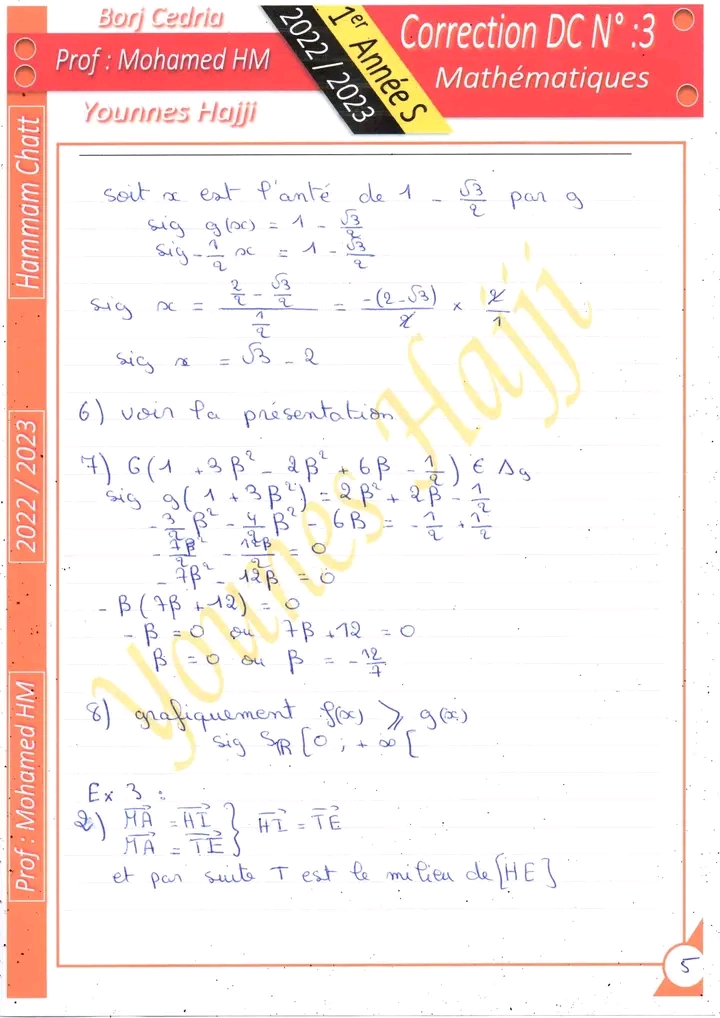 Borj Cedria
Prof : Mohamed HM
Younnes Hajji
2022 / 2023
1er Année S
Correction DC N° :3
Mathématiques
Hammam Chatt
2022 / 2023
Prof : Mohamed HM
soit x est l'anté de 1 - √3/2 par g
sig g(x) = 1 - √3/2
sig -1/2 x = 1 - √3/2
sig x = (2/2 - √3/2)/(1/2) = -(2-√3)/2 × 2/1
sig x = √3 - 2
6) voir la présentation
7) G(1 + 3β² - 2β² + 6β - 1/2) ∈ Δg
sig g(1 + 3β²) = 2β² + 2β - 1/2
-3/2 β² - 4/2 β² - 6β = -1/2 + 1/2
-7β²/2 - 12β/2 = 0
- 7β² - 12β = 0
- β(7β + 12) = 0
- β = 0 ou 7β + 12 = 0
β = 0 ou β = -12/7
8) grafiquement f(x) ⩾ g(x)
sig Sℝ [0 ; +∞[
Ex 3 :
2) MA = HI } HI = TE
MA = TE
et par suite T est le milieu de [HE]
Younes Hajji
5